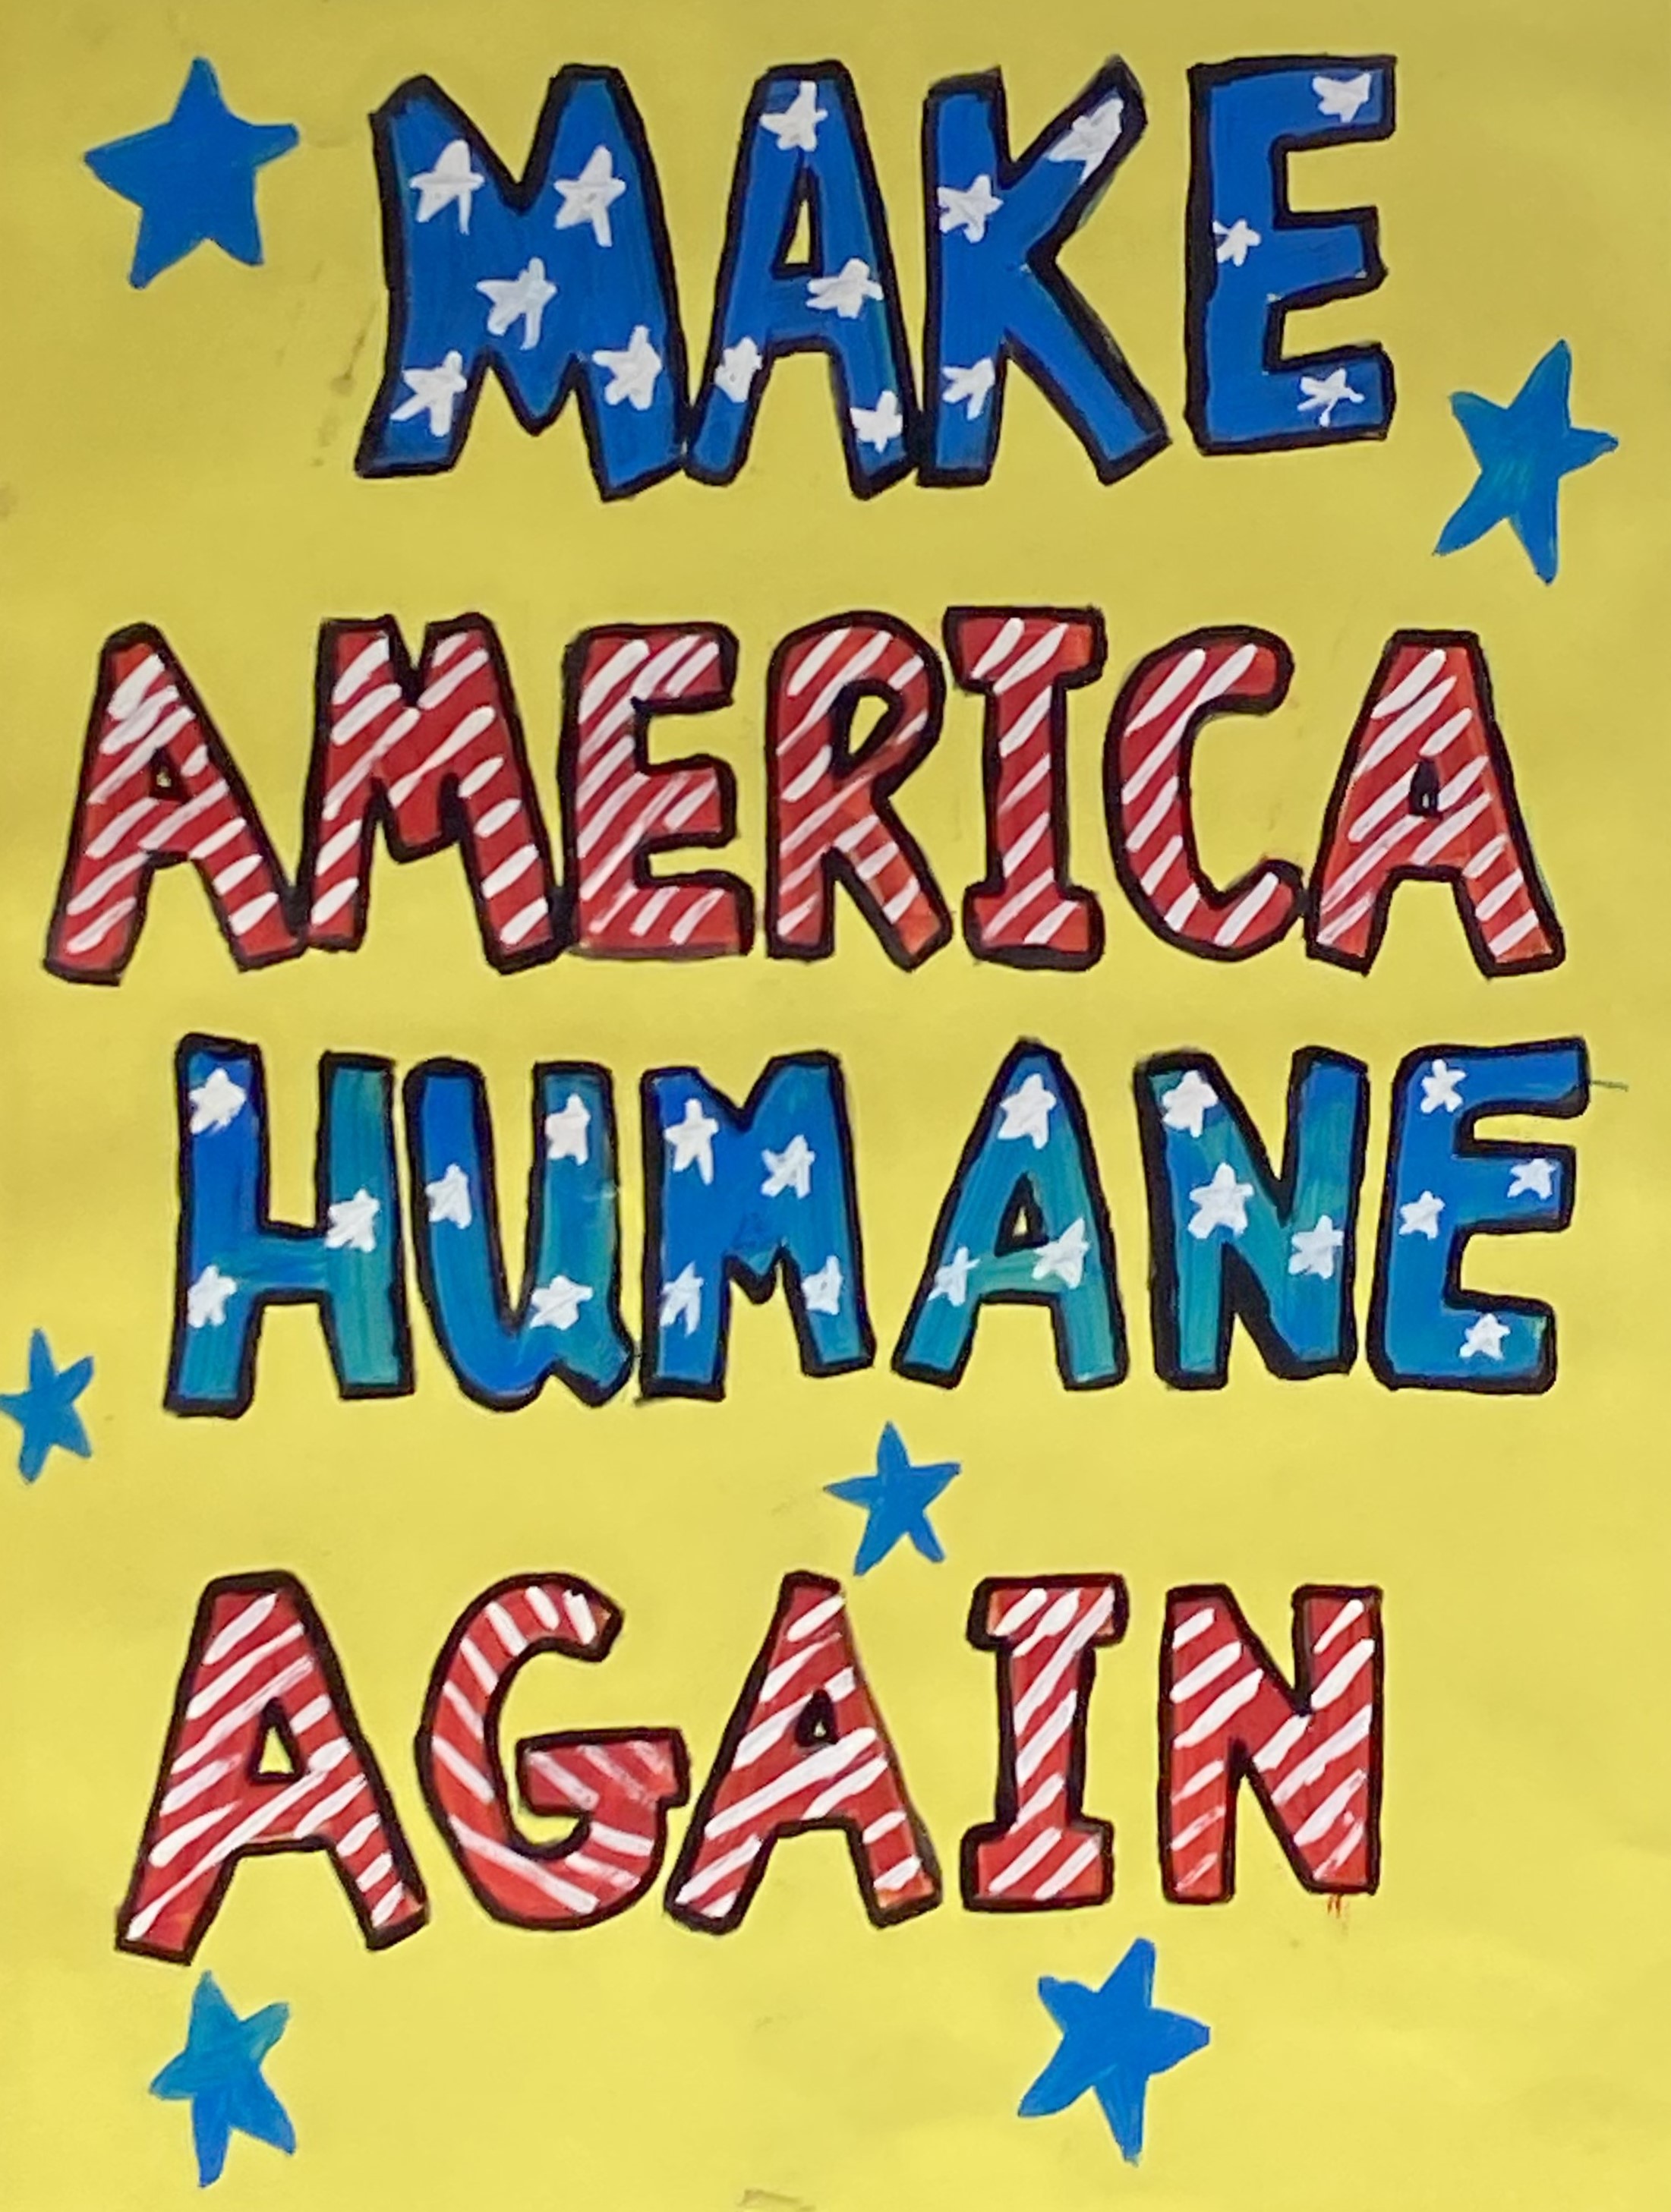 MAKE
AMERICA
HUMANE
AGAIN